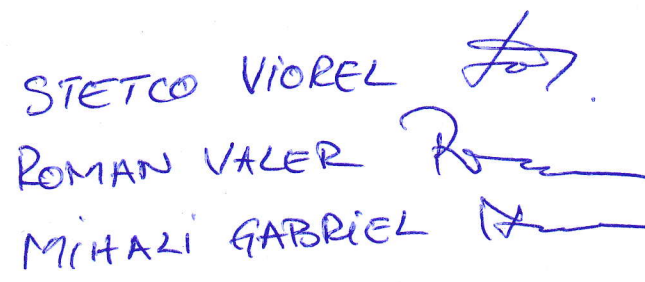 STETCO VIOREL
ROMAN VALER
MIHALI GABRIEL